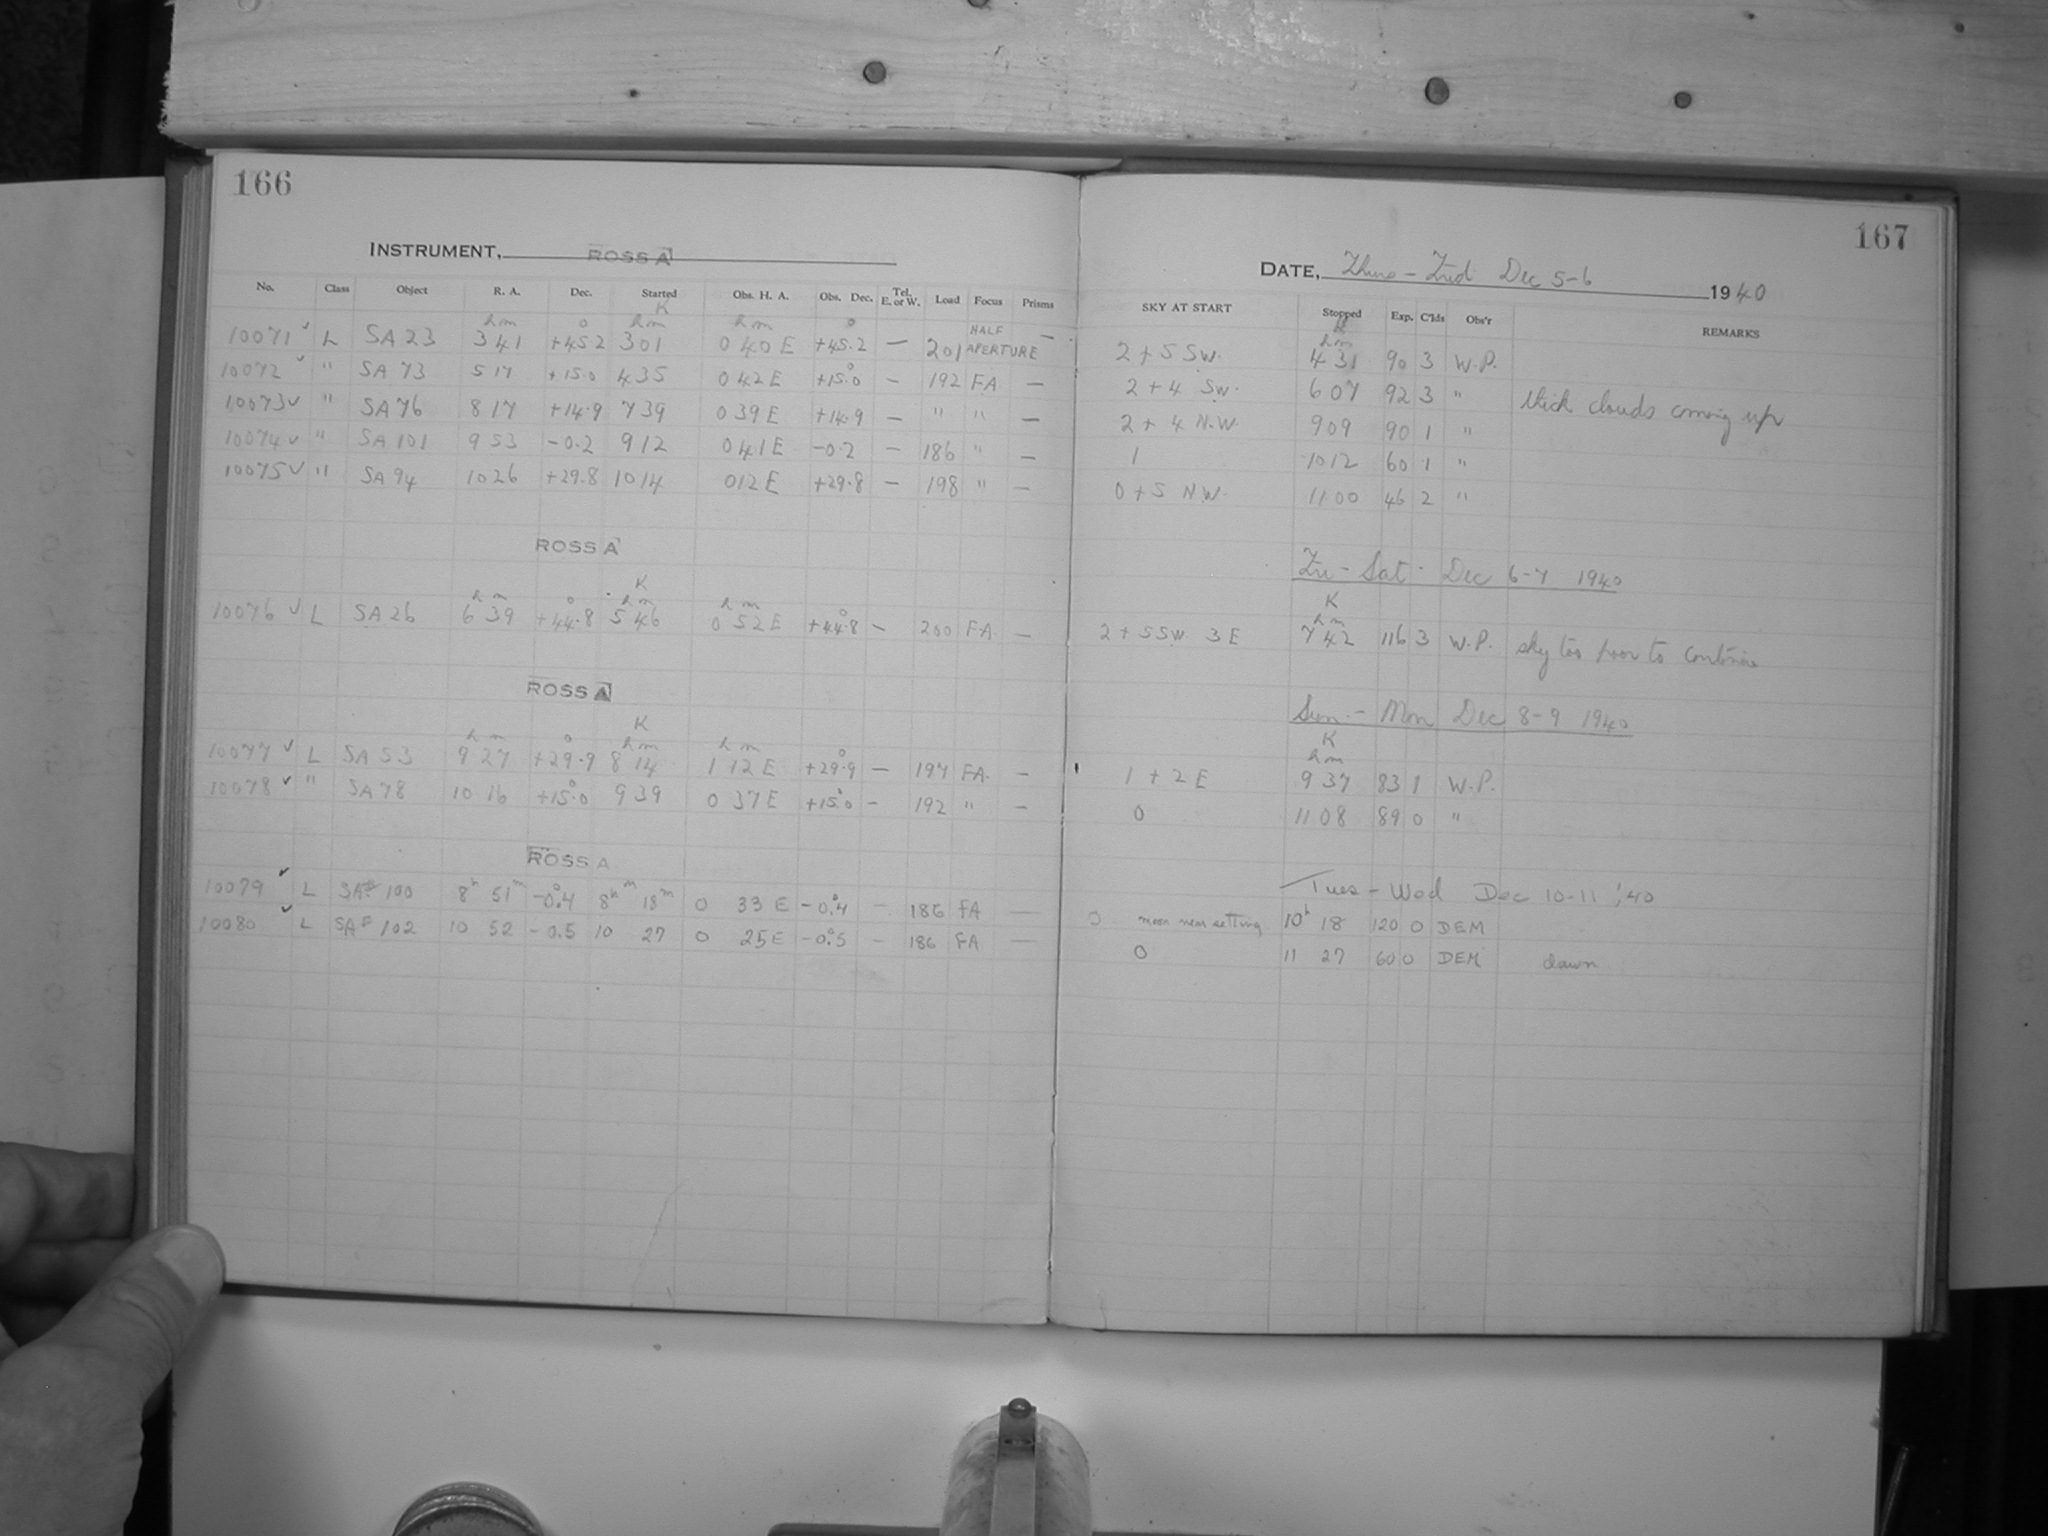 166
INSTRUMENT, ROSS A
No. Class Object R. A. Dec. Started Obs. H. A. Obs. Dec. Tel. E. or W. Load Focus Prisms
K
h m o h m h m o
10071 ✓ L SA 23 3 41 +45.2 3 01 0 40 E +45.2 — 201 HALF APERTURE —
10072 ✓ " SA 73 5 17 +15.0 4 35 0 42 E +15.0 — 192 FA —
10073 ✓ " SA 76 8 17 +14.9 7 39 0 39 E +14.9 — " " —
10074 ✓ " SA 101 9 53 -0.2 9 12 0 41 E -0.2 — 186 " —
10075 ✓ " SA 94 10 26 +29.8 10 14 0 12 E +29.8 — 198 " —
ROSS A
K
h m o h m h m o
10076 ✓ L SA 26 6 39 +44.8 5 46 0 52 E +44.8 — 200 FA. —
ROSS A
K
h m o h m h m o
10077 ✓ L SA 53 9 27 +29.9 8 14 1 12 E +29.9 — 197 FA. —
10078 ✓ " SA 78 10 16 +15.0 9 39 0 37 E +15.0 — 192 " —
ROSS A
10079 ✓ L SA 100 8h 51m -0.4 8h 18m 0 33 E -0.4 — 186 FA —
10080 ✓ L SA 102 10 52 -0.5 10 27 0 25 E -0.5 — 186 FA —
167
DATE, Thurs - Frid Dec 5-6 1940
SKY AT START Stopped Exp. C'lds Obs'r REMARKS
h m
2 + 5 SW. 4 31 90 3 W.P.
2 + 4 SW. 6 07 92 3 " thick clouds coming up
2 + 4 N.W. 9 09 90 1 "
1 10 12 60 1 "
0 + 5 N.W. 11 00 46 2 "
Fri - Sat. Dec 6-7 1940
K
h m
2 + 5 SW. 3 E 7 42 116 3 W.P. sky too poor to continue
Sun. - Mon Dec 8-9 1940
K
h m
1 + 2 E 9 37 83 1 W.P.
0 11 08 89 0 "
Tues - Wed Dec 10-11 '40
0 moon near setting 10h 18 120 0 DEM
0 11 27 60 0 DEM dawn